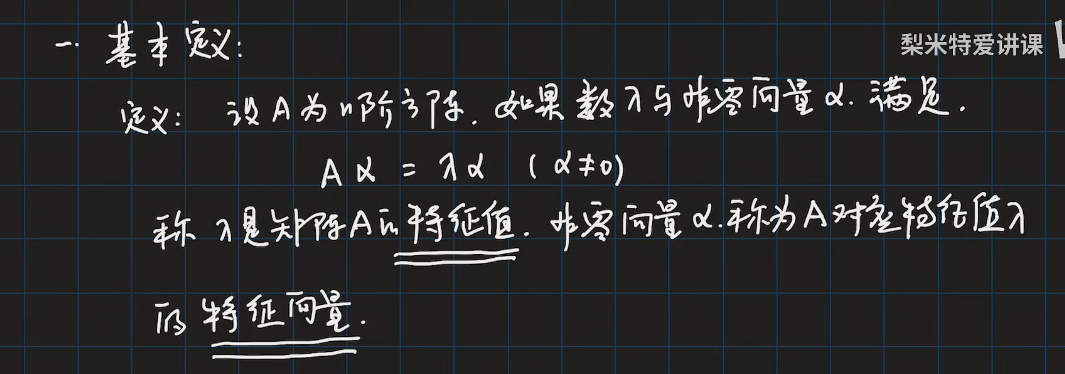 一. 基本定义:
梨米特爱讲课
定义: 设A为n阶方阵. 如果数λ与非零向量α. 满足.
Aα = λα (α≠0)
称 λ是矩阵A的特征值. 非零向量α.称为A对应特征值λ
的特征向量.